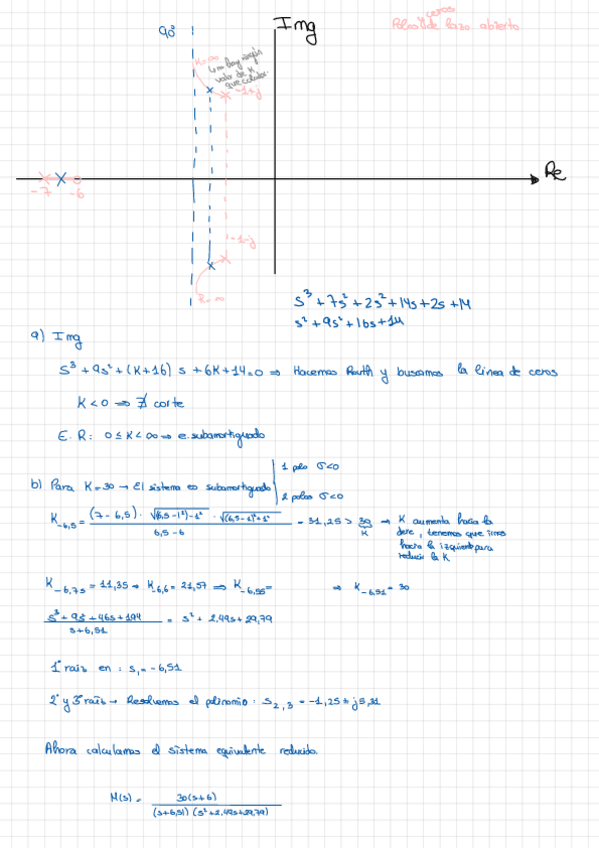 ceros
Polos de lazo abierto
90º
Img
K=∞
valor de K
-1+j
Re
-7
-6
-1-j
K=∞
s³ + 7s² + 2s² + 14s + 2s + 14
s² + 9s² + 16s + 14
a) Img
s³ + 9s² + (K+16) s + 6K + 14 = 0 ⇒ Hacemos Routh y buscamos la linea de ceros
K < 0 ⇒ ∄ corte
E. R: 0 ≤ K < ∞ ⇒ e. subamortiguado
b) Para K = 30 → El sistema es subamortiguado
1 polo σ<0
2 polos σ<0
K₋₆,₅ = (7 - 6,5) · √(6,5 - 1²) - 1² · √(6,5 - 1)² + 1² / 6,5 - 6 = 31,25 > 30 → K aumenta hacia la
K
dere, tenemos que irnos
hacia la izquierda para
reducir la K
K₋₆,₇₅ = 11,35 → K₋₆,₆ = 21,57 ⇒ K₋₆,₅₅ = ⇒ K₋₆,₅₁ = 30
s³ + 9s² + 46s + 194 / s + 6,51 = s² + 2,49s + 29,79
1ª raiz en : s₁ = -6,51
2ª y 3ª raíz → Resolvemos el polinomio : s₂,₃ = -1,25 ± j5,31
Ahora calculamos el sistema equivalente reducido.
M(s) = 30(s+6) / (s+6,51) (s² + 2,49s + 29,79)